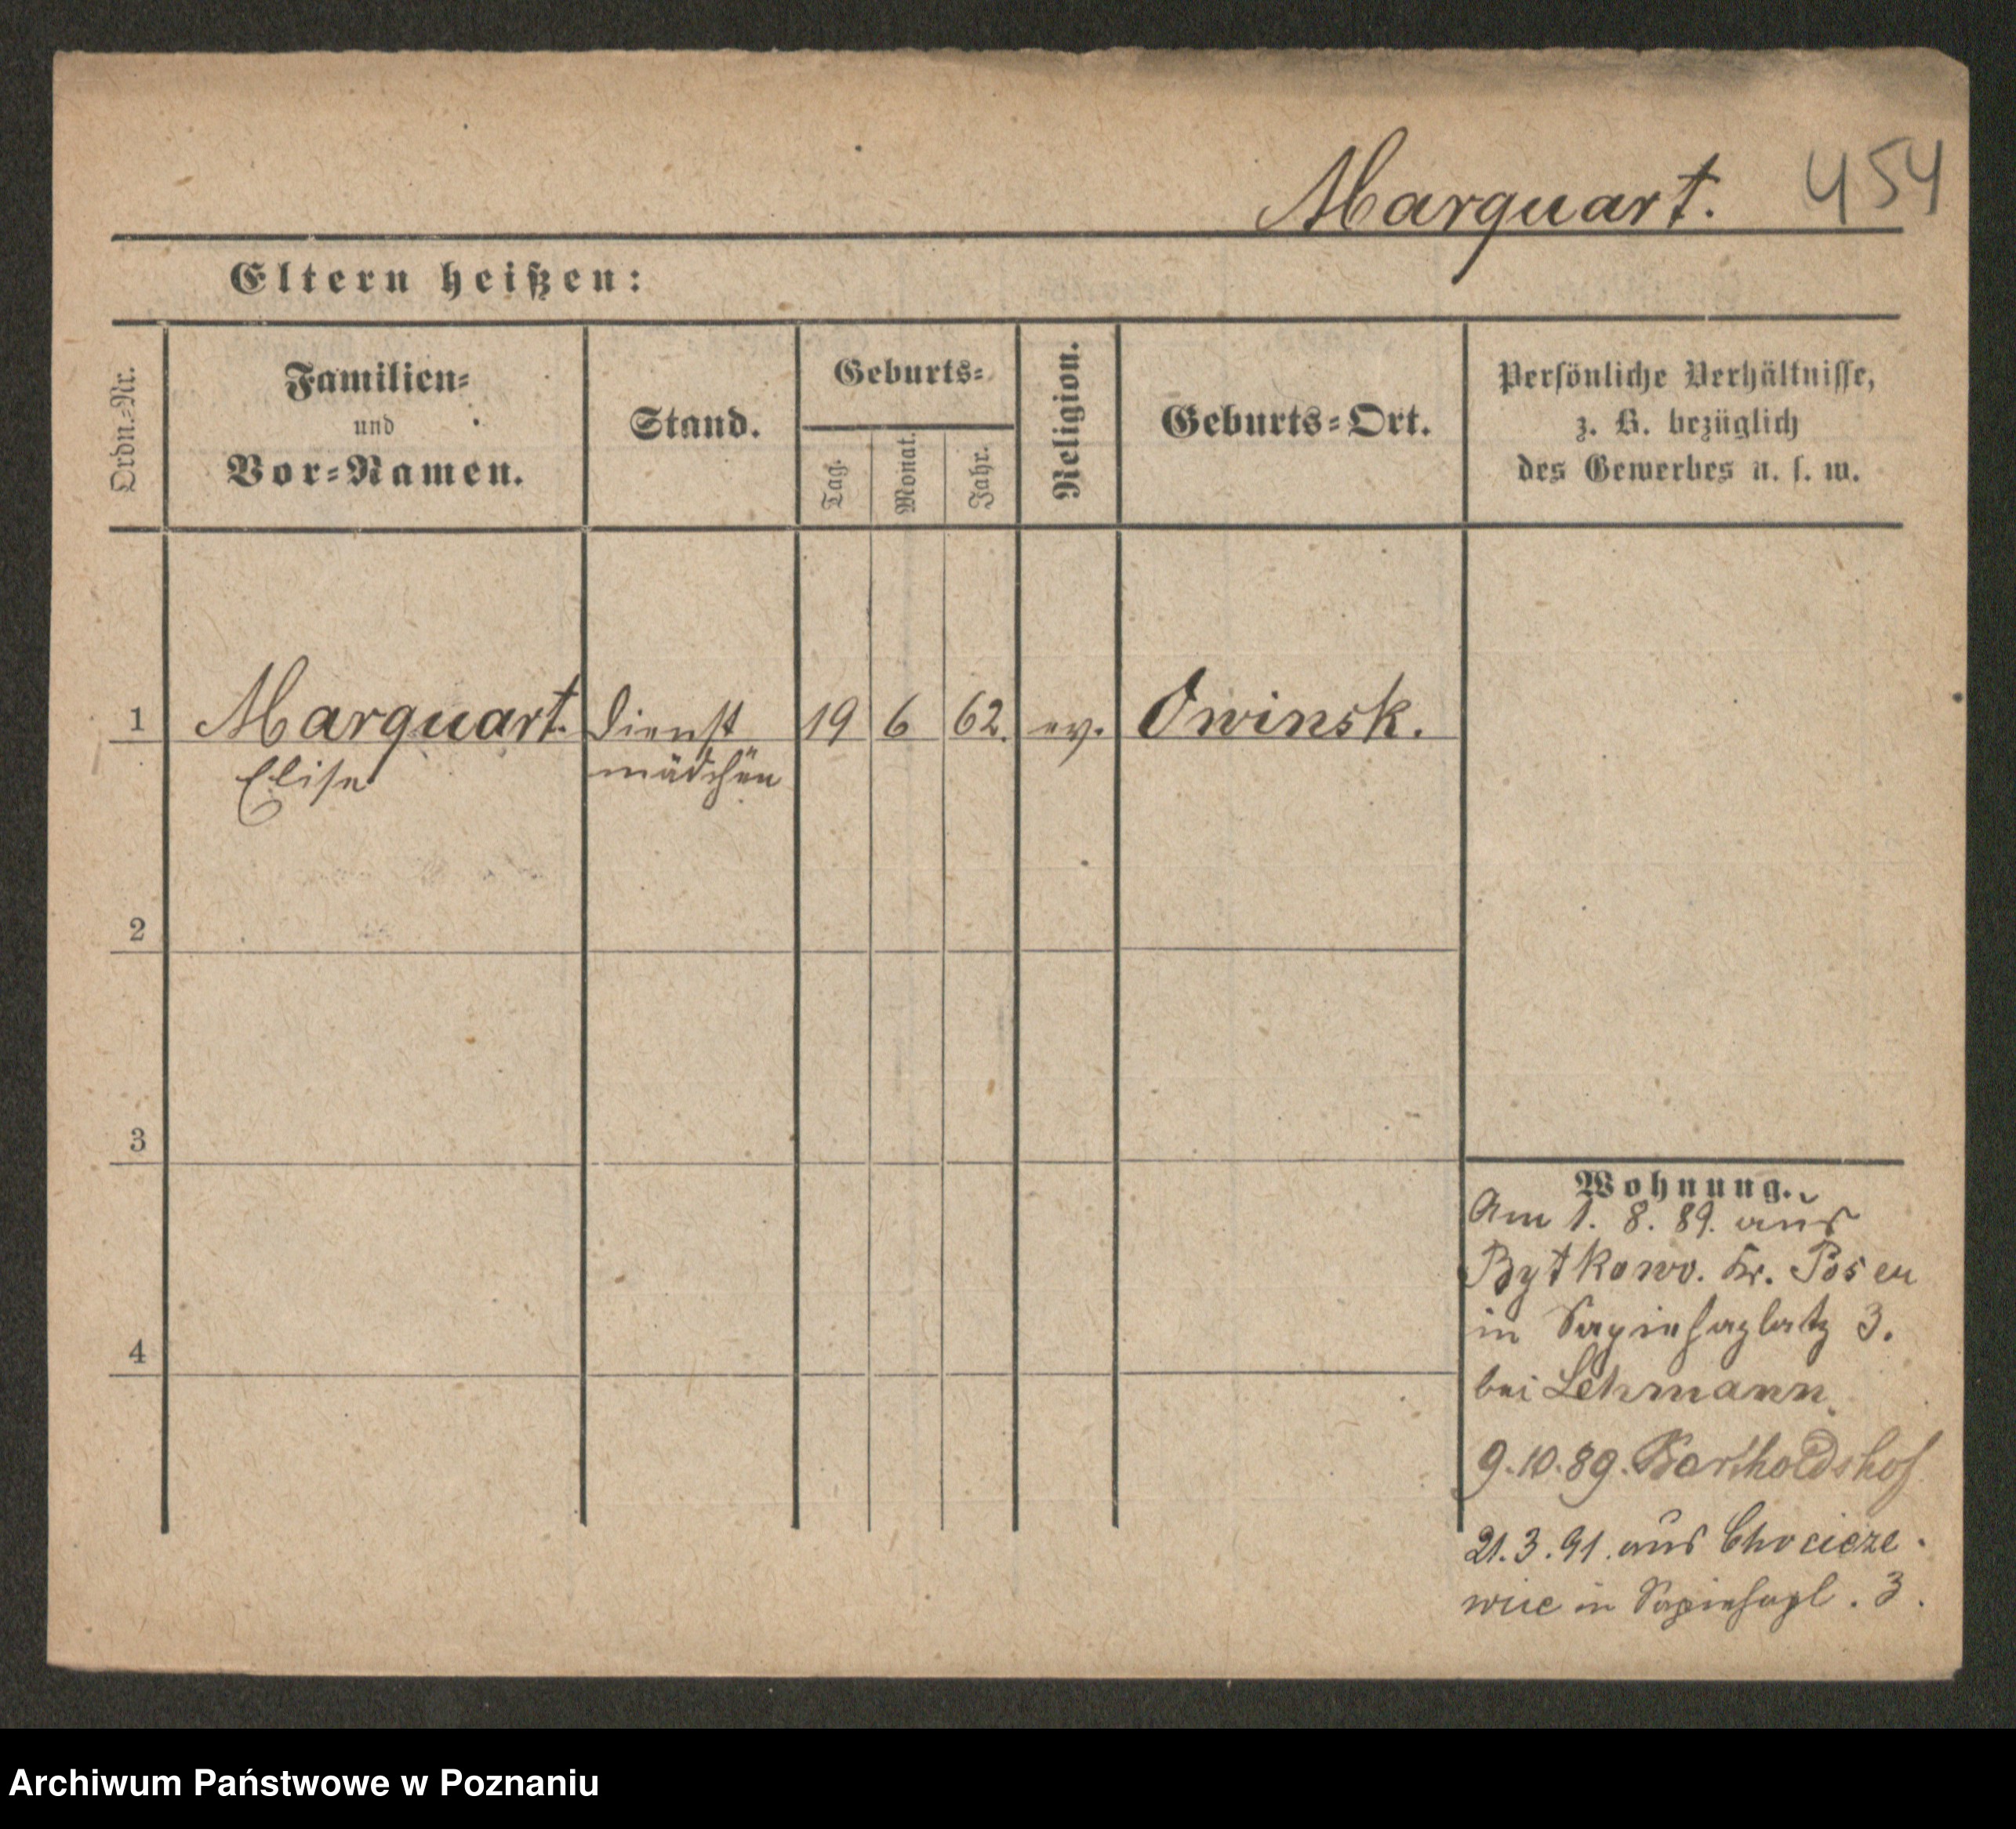 Marquart. 454
Eltern heißen:
Ordn.-Nr.
Familien-
und
Vor-Namen.
Stand.
Geburts-
Tag.
Monat.
Jahr.
Religion.
Geburts-Ort.
Persönliche Verhältnisse,
z. B. bezüglich
des Gewerbes u. s. w.
1 Marquart. Dienst 19 6 62. ev. Owinsk.
Elise mädchen
2
3
4
Wohnung.
Am 1. 8. 89. aus
Bytkowo. Kr. Posen
in Sapiehaplatz 3.
bei Lehmann.
9.10.89. Bartholdshof
21.3.91. aus Chocicze-
wice in Sapiehapl. 3.
Archiwum Państwowe w Poznaniu